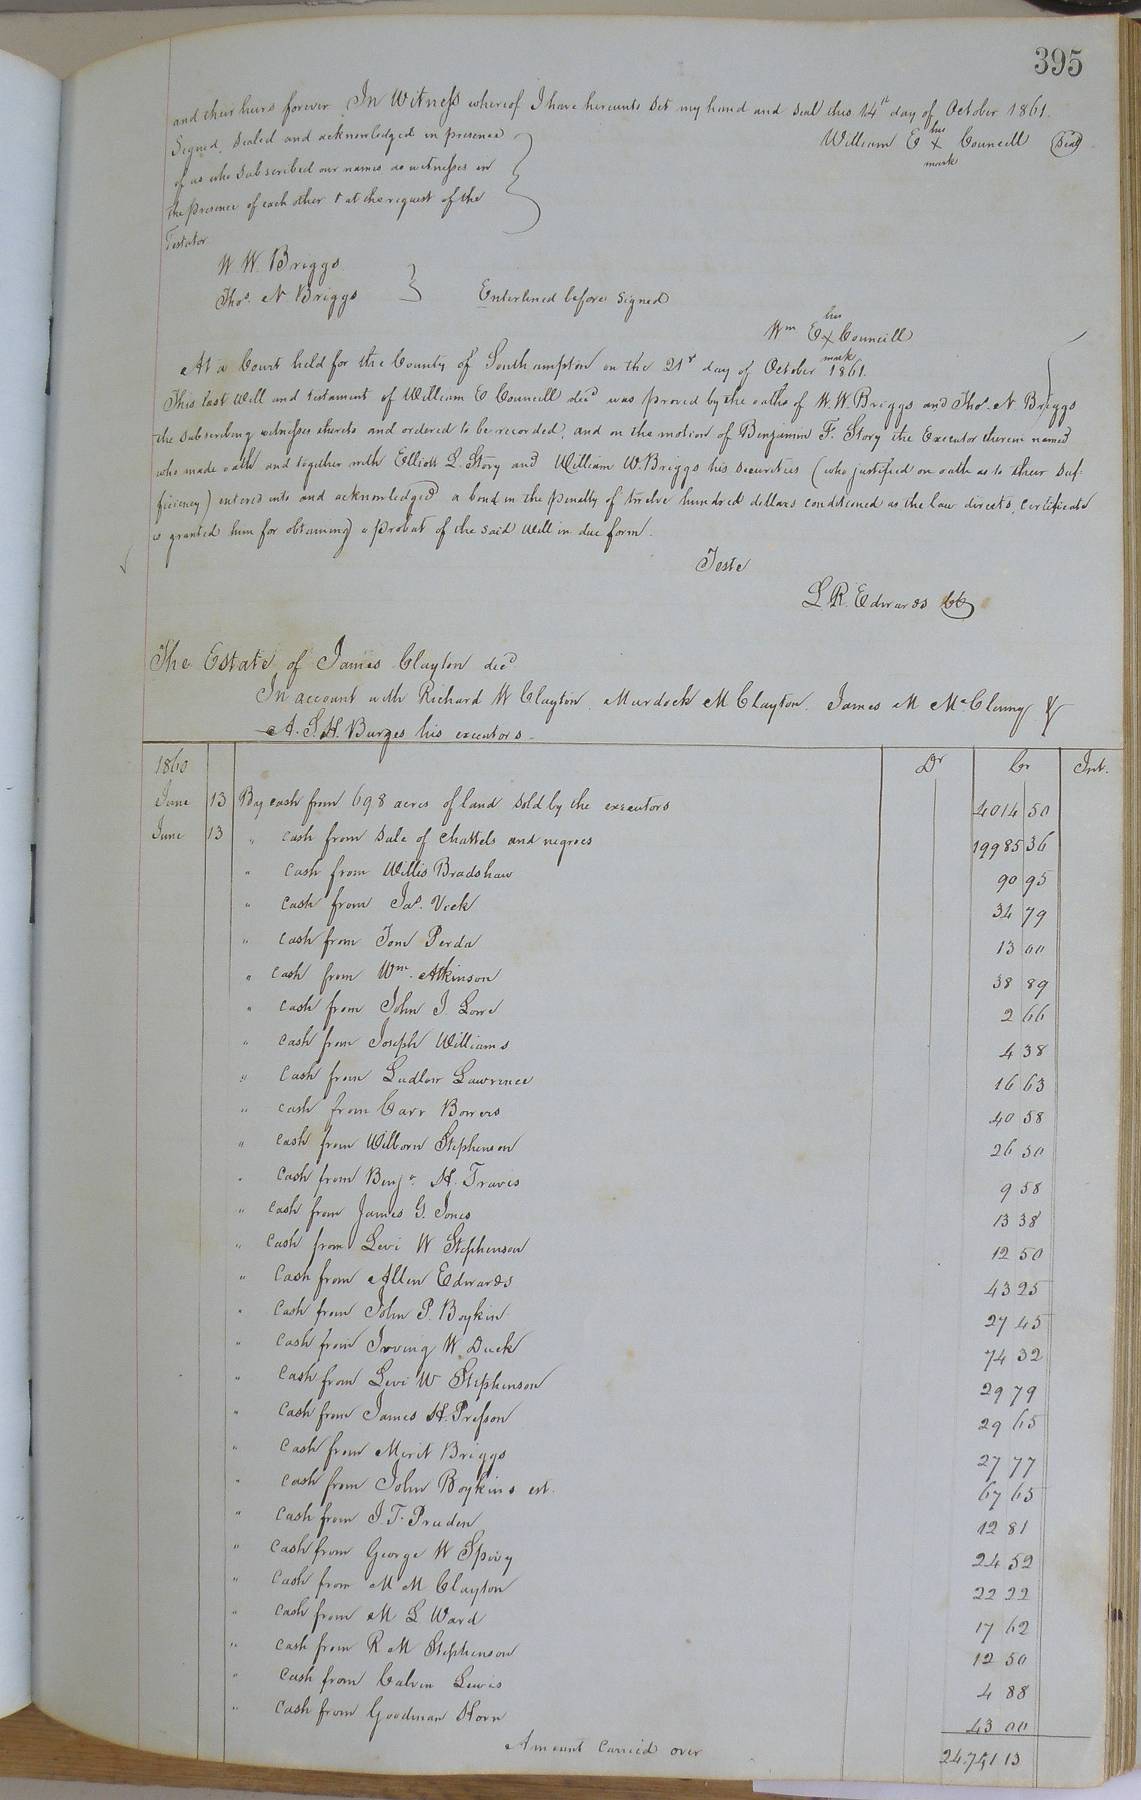 395
and their heirs forever In Witness whereof I have hereunto set my hand and seal this 14th day of October 1861.
Signed, Sealed and acknowledged in presence
of us who subscribed our names as witnesses in
the presence of each other & at the request of the
Testator
his
William E x Councill (Seal)
mark
W W. Briggs
Thos. N Briggs
Enterlined before signed
his
Wm E x Councill
mark
At a Court held for the County of Southampton on the 21st day of October 1861.
This last Will and testament of William E Councill decd was proved by the oaths of W. W. Briggs and Thos. N. Briggs
the subscribing witnesses thereto and ordered to be recorded, and on the motion of Benjamin F. Story the Executor therein named
who made oath and together with Elliott L. Story and William W. Briggs his securities (who justified on oath as to their suf-
ficiency) entered into and acknowledged a bond in the penalty of twelve hundred dollars conditioned as the law directs, certificate
is granted him for obtaining a probat of the said Will in due form.
Teste
L. R. Edwards CC
The Estate of James Clayton decd
In account with Richard W Clayton, Murdock M Clayton, James M McClenny &
A. S. H. Burges his executors.
1860 Dr Cr Int.
June 13 By cash from 698 acres of land sold by the executors 4014 50
June 13 " cash from sale of chattels and negroes 19985 36
" cash from Willis Bradshaw 90 95
" cash from Jas. Vick 34 79
" cash from Tom Perda 13 00
" cash from Wm. Atkinson 38 89
" cash from John J. Lowe 2 66
" cash from Joseph Williams 4 38
" cash from Ludlow Lawrence 16 63
" cash from Carr Bowers 40 58
" cash from Wilborn Stephenson 26 50
" cash from Benja. H. Travis 9 58
" cash from James G. Jones 13 38
" cash from Levi W Stephenson 12 50
" cash from Allen Edwards 43 25
" cash from John P. Boykin 27 45
" cash from Irving W Duck 74 32
" cash from Levi W Stephenson 29 79
" cash from James H. Presson 29 65
" cash from Merit Briggs 27 77
" cash from John Boykins est. 67 65
" cash from J. T. Pruden 12 81
" cash from George W Spivy 24 52
" cash from M M Clayton 22 22
" cash from M L Ward 17 62
" cash from R M Stephenson 12 50
" cash from Calvin Lewis 4 88
" cash from Goodman Horn 43 00
Amount Carried over 24.741 13